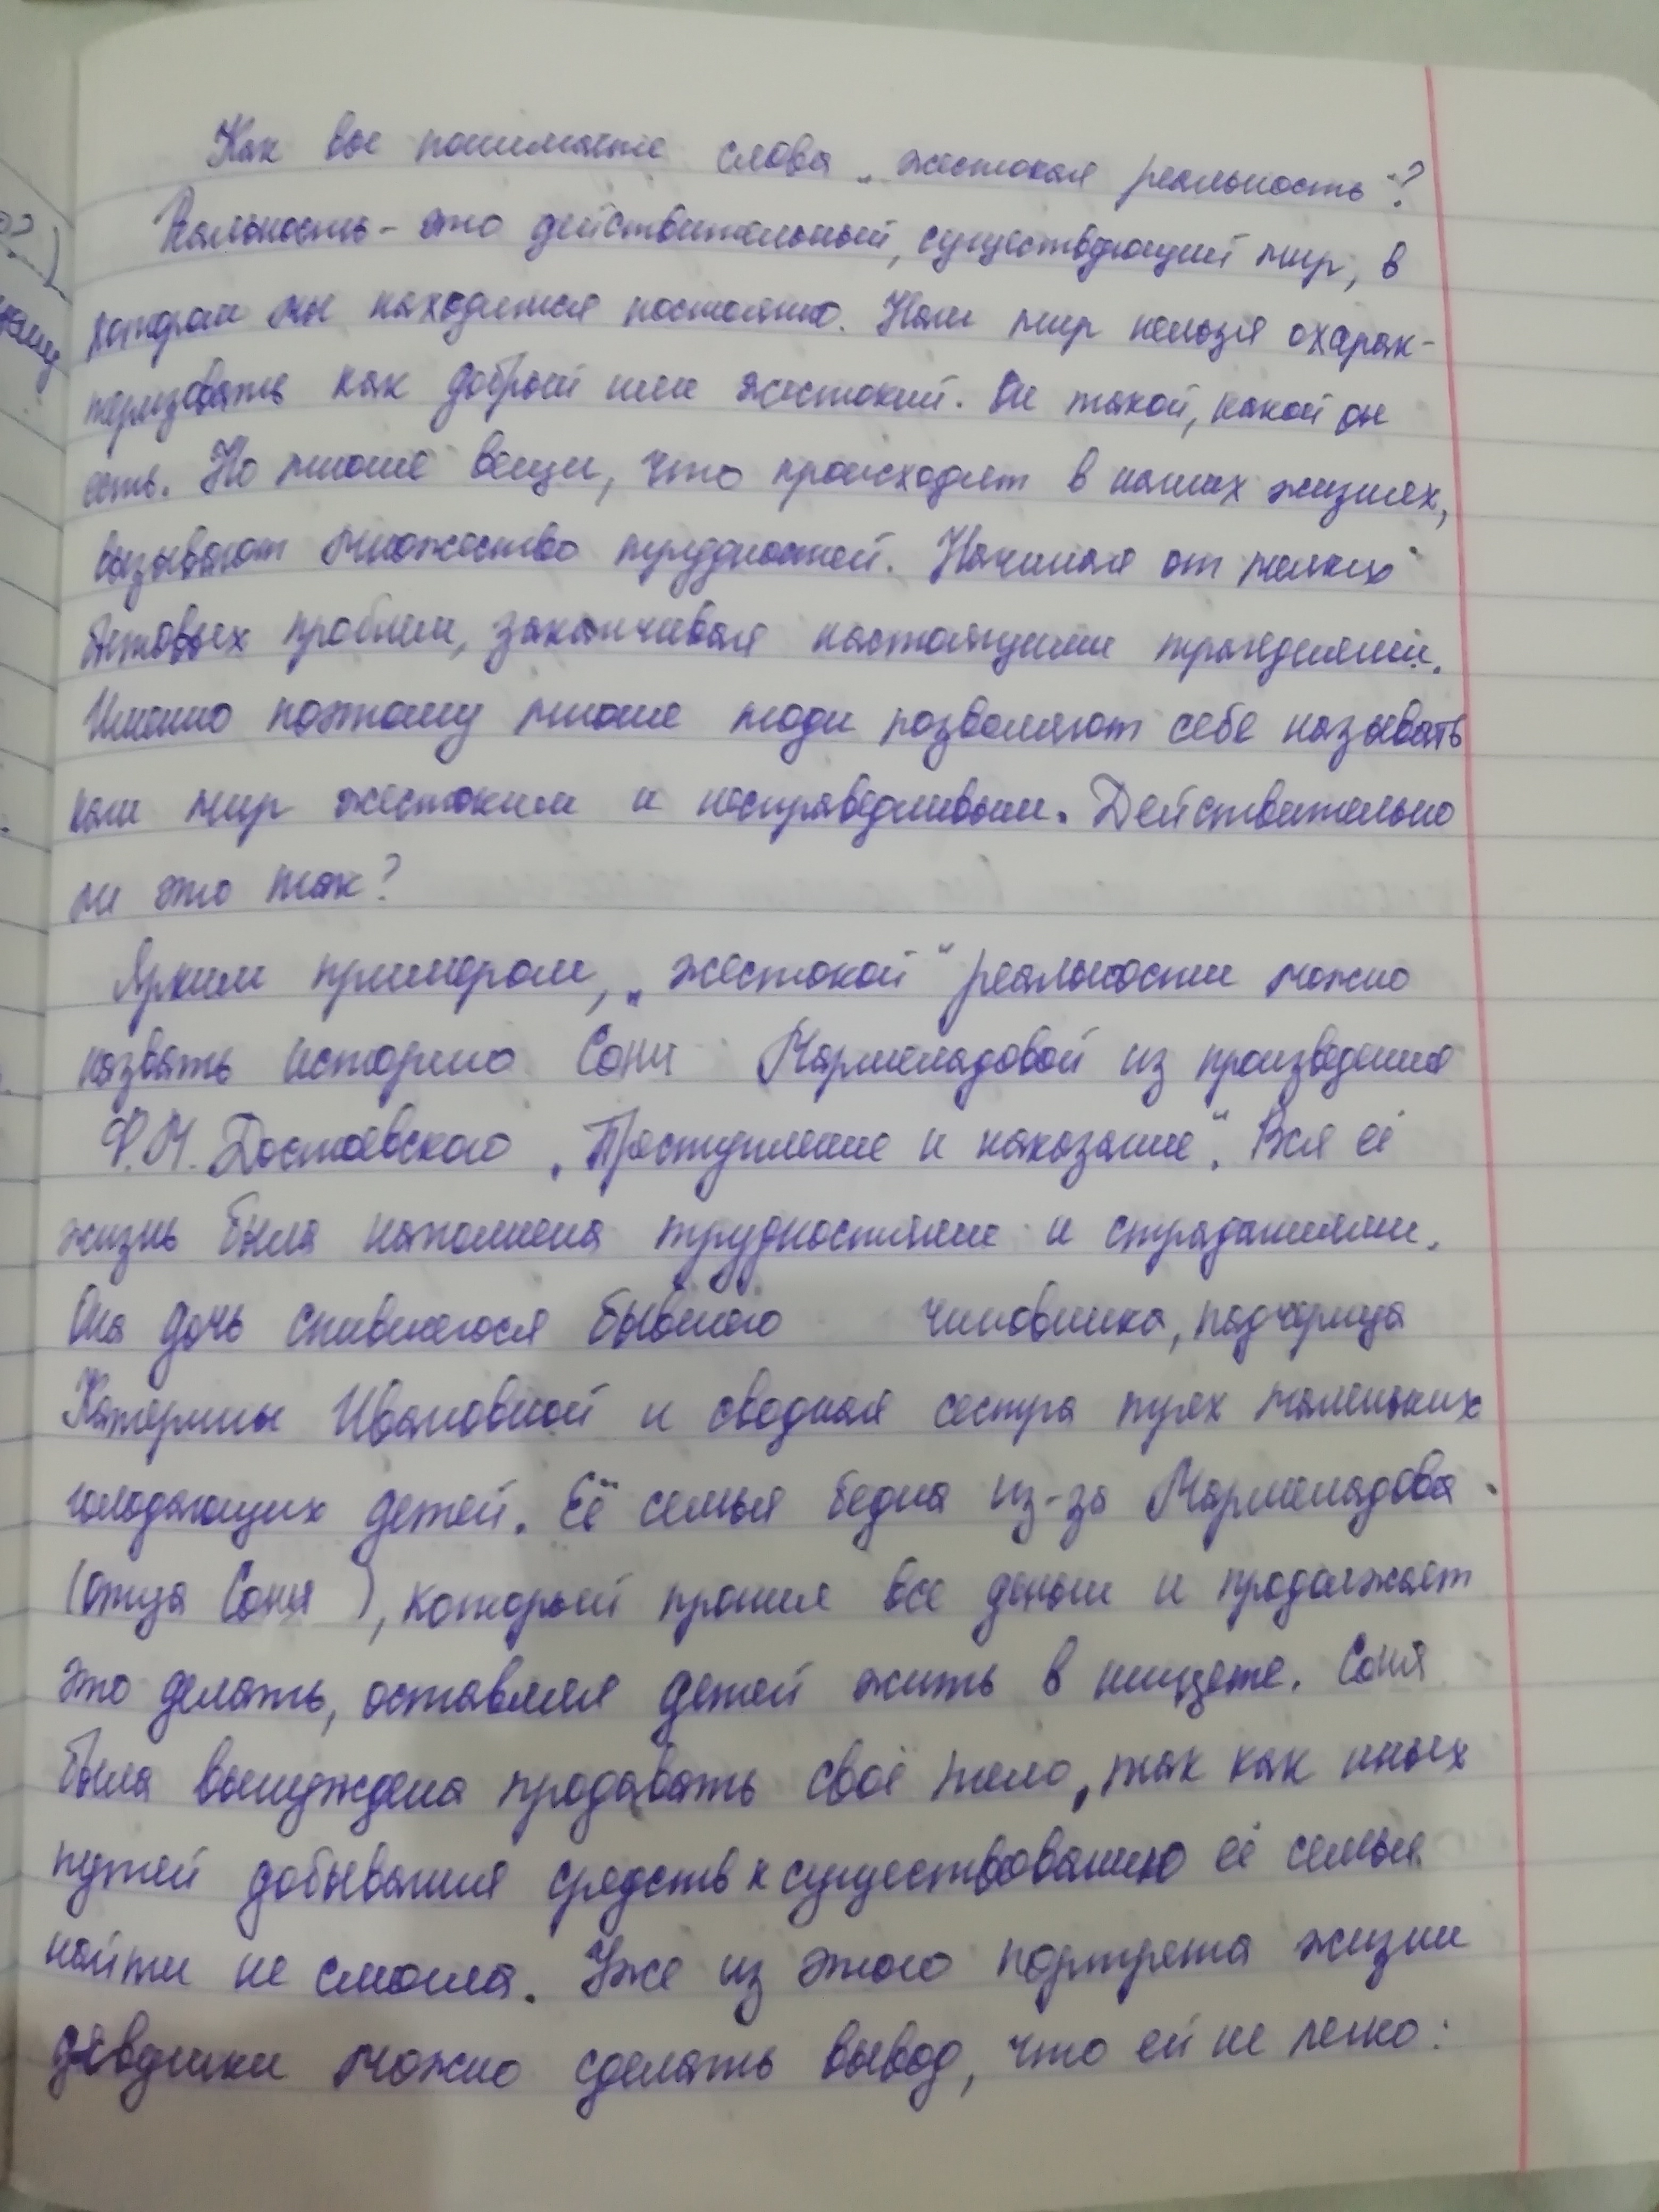 Как вы понимаете слова „жестокая реальность"?
Реальность - это действительный, существующий мир, в
котором мы находимся постоянно. Наш мир нельзя охарак-
теризовать как добрый или жестокий. Он такой, какой он
есть. Но многие вещи, что происходят в наших жизнях,
вызывают множество трудностей. Начиная от мелких
бытовых проблем, заканчивая настоящими трагедиями.
Именно поэтому многие люди позволяют себе называть
наш мир жестоким и несправедливым. Действительно
ли это так?
Ярким примером, „жестокой" реальности можно
назвать историю Сони Мармеладовой из произведения
Ф.М. Достоевского „Преступление и наказание". Вся её
жизнь была наполнена трудностями и страданиями.
Она дочь спившегося бывшего чиновника, падчерица
Катерины Ивановной и сводная сестра трёх маленьких
голодающих детей. Её семья бедна из-за Мармеладова
(отца Сони), который пропил все деньги и продолжает
это делать, оставляя детей жить в нищете. Соня
была вынуждена продавать своё тело, так как иных
путей добывания средств к существованию её семья
найти не смогла. Уже из этого портрета жизни
девушки можно сделать вывод, что ей не легко: